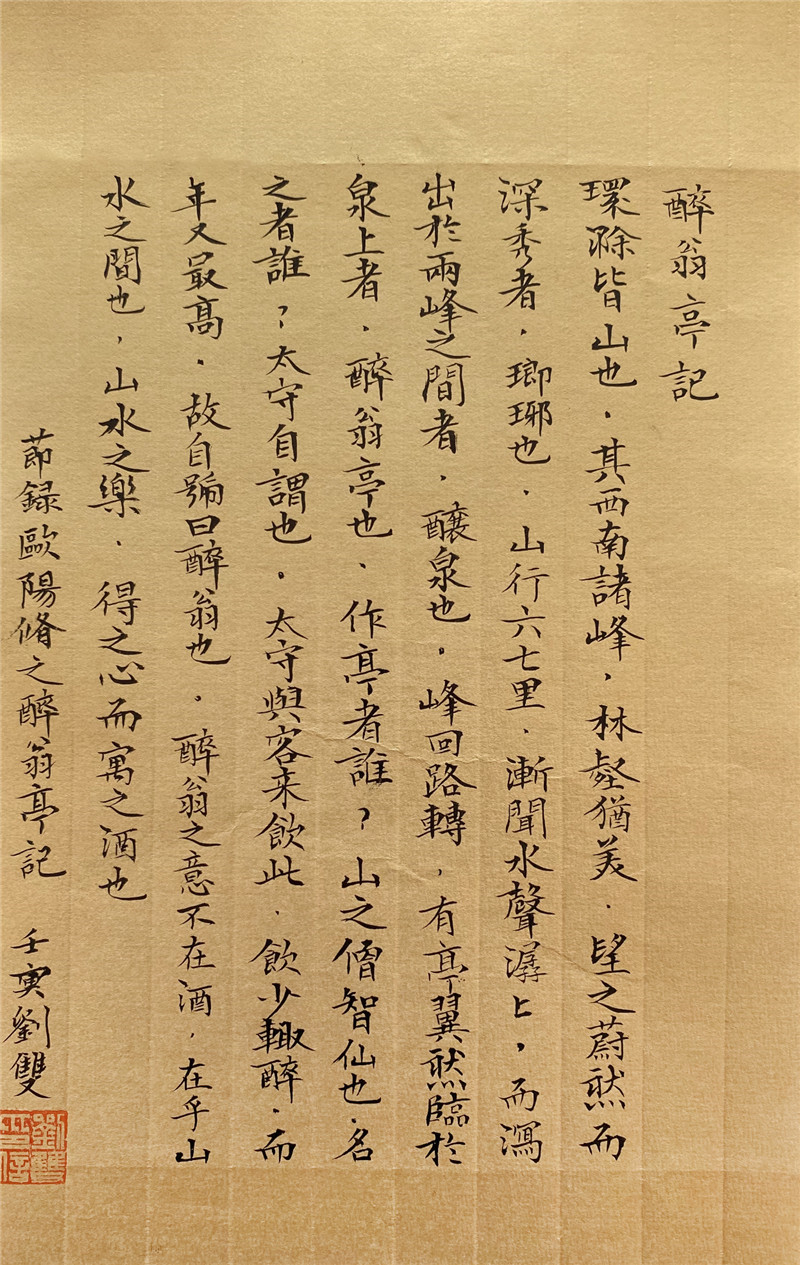 醉翁亭記
環滁皆山也．其西南諸峰，林壑猶美．望之蔚然而
深秀者．瑯琊也．山行六七里．漸聞水聲潺ヒ，而瀉
出於兩峰之間者．釀泉也。峰回路轉，有亭翼然臨於
泉上者．醉翁亭也、作亭者誰？山之僧智仙也．名
之者誰？太守自謂也。太守與客来飲此．飲少輙醉．而
年又最高．故自號曰醉翁也。醉翁之意不在酒．在乎山
水之間也，山水之樂．得之心而寓之酒也
節録歐陽脩之醉翁亭記 壬寅劉雙
劉雙